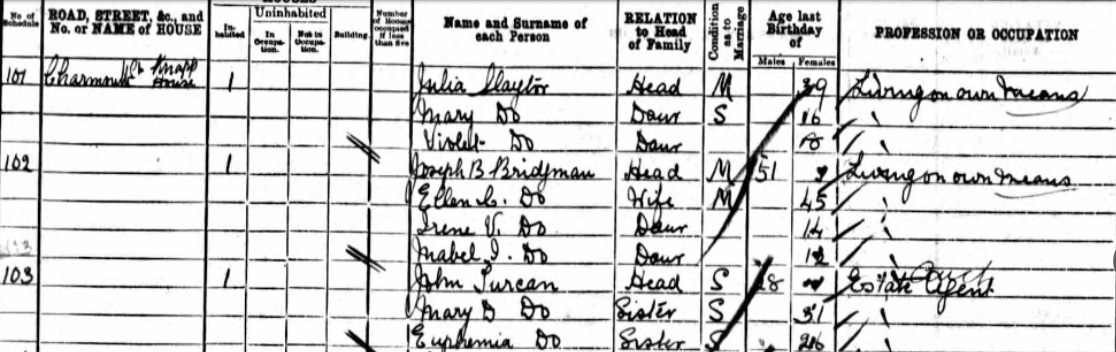 No. of Schedule ROAD, STREET, &c., and No. or NAME of HOUSE HOUSES In-habited Uninhabited In Occupa-tion. Not in Occupa-tion. Building. Number of Rooms occupied if less than five Name and Surname of each Person RELATION to Head of Family Condition as to Marriage Age last Birthday of Males Females PROFESSION OR OCCUPATION
101 Charmouth Knapp House 1 Julia Slayter Head M 39 Living on own means
Mary Do Daur S 16 "
Violet Do Daur "
102 1 Joseph B Bridgman Head M 51 Living on own means
Ellen C. Do Wife M 45 "
Irene V. Do Daur 14 "
Mabel I. Do Daur 12 "
103 1 John Head S 28 Estate Agent
Mary D Do Sister S 31 "
Euphemia Do Sister S 26 "